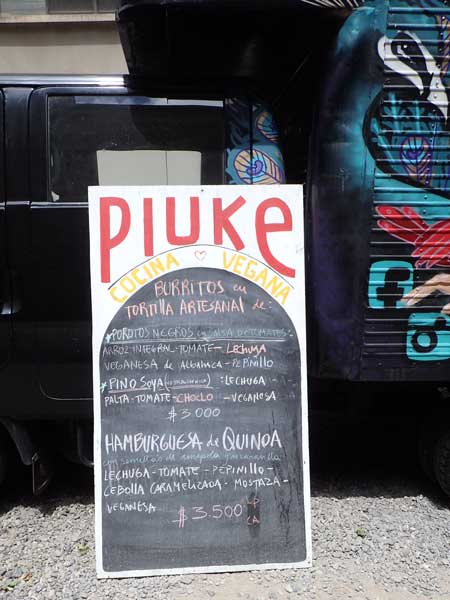 PIUKE
COCINA VEGANA
BURRITOS en
TORTILLA ARTESANAL de:
*POROTOS NEGROS en SALSA DE TOMATES:
ARROZ INTEGRAL-TOMATE-LECHUGA
VEGANESA de ALBAHACA-PEPINILLO
*PINO SOYA :LECHUGA-
PALTA-TOMATE-CHOCLO-VEGANESA
$3.000
HAMBURGUESA de QUINOA
con semillas de
LECHUGA-TOMATE-PEPINILLO-
CEBOLLA CARAMELIZADA-MOSTAZA-
VEGANESA
$3.500